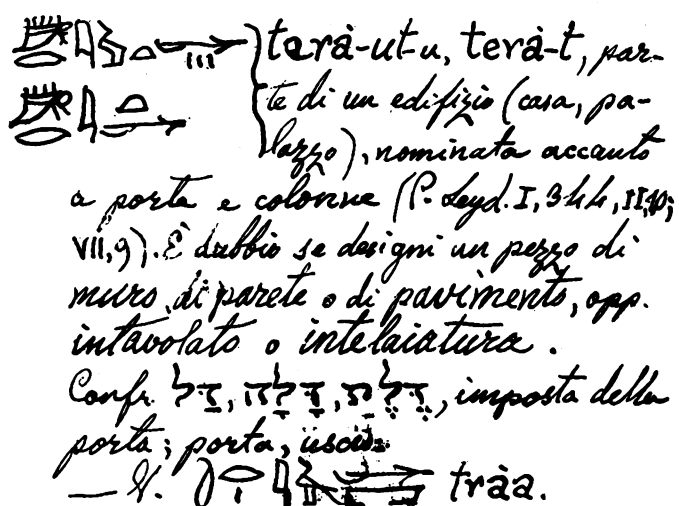 terà-ut-u, terà-t, par-
te di un edifizio (casa, pa-
lazzo), nominata accanto
a porta e colonne (P. Leyd. I, 344, II,10;
VII,9). È dubbio se designi un pezzo di
muro, di parete o di pavimento, opp.
intavolato o intelaiatura.
Confr. דַל, דַּלָה, דֶּלֶת, imposta della
porta; porta, uscio.
— V. tràa.